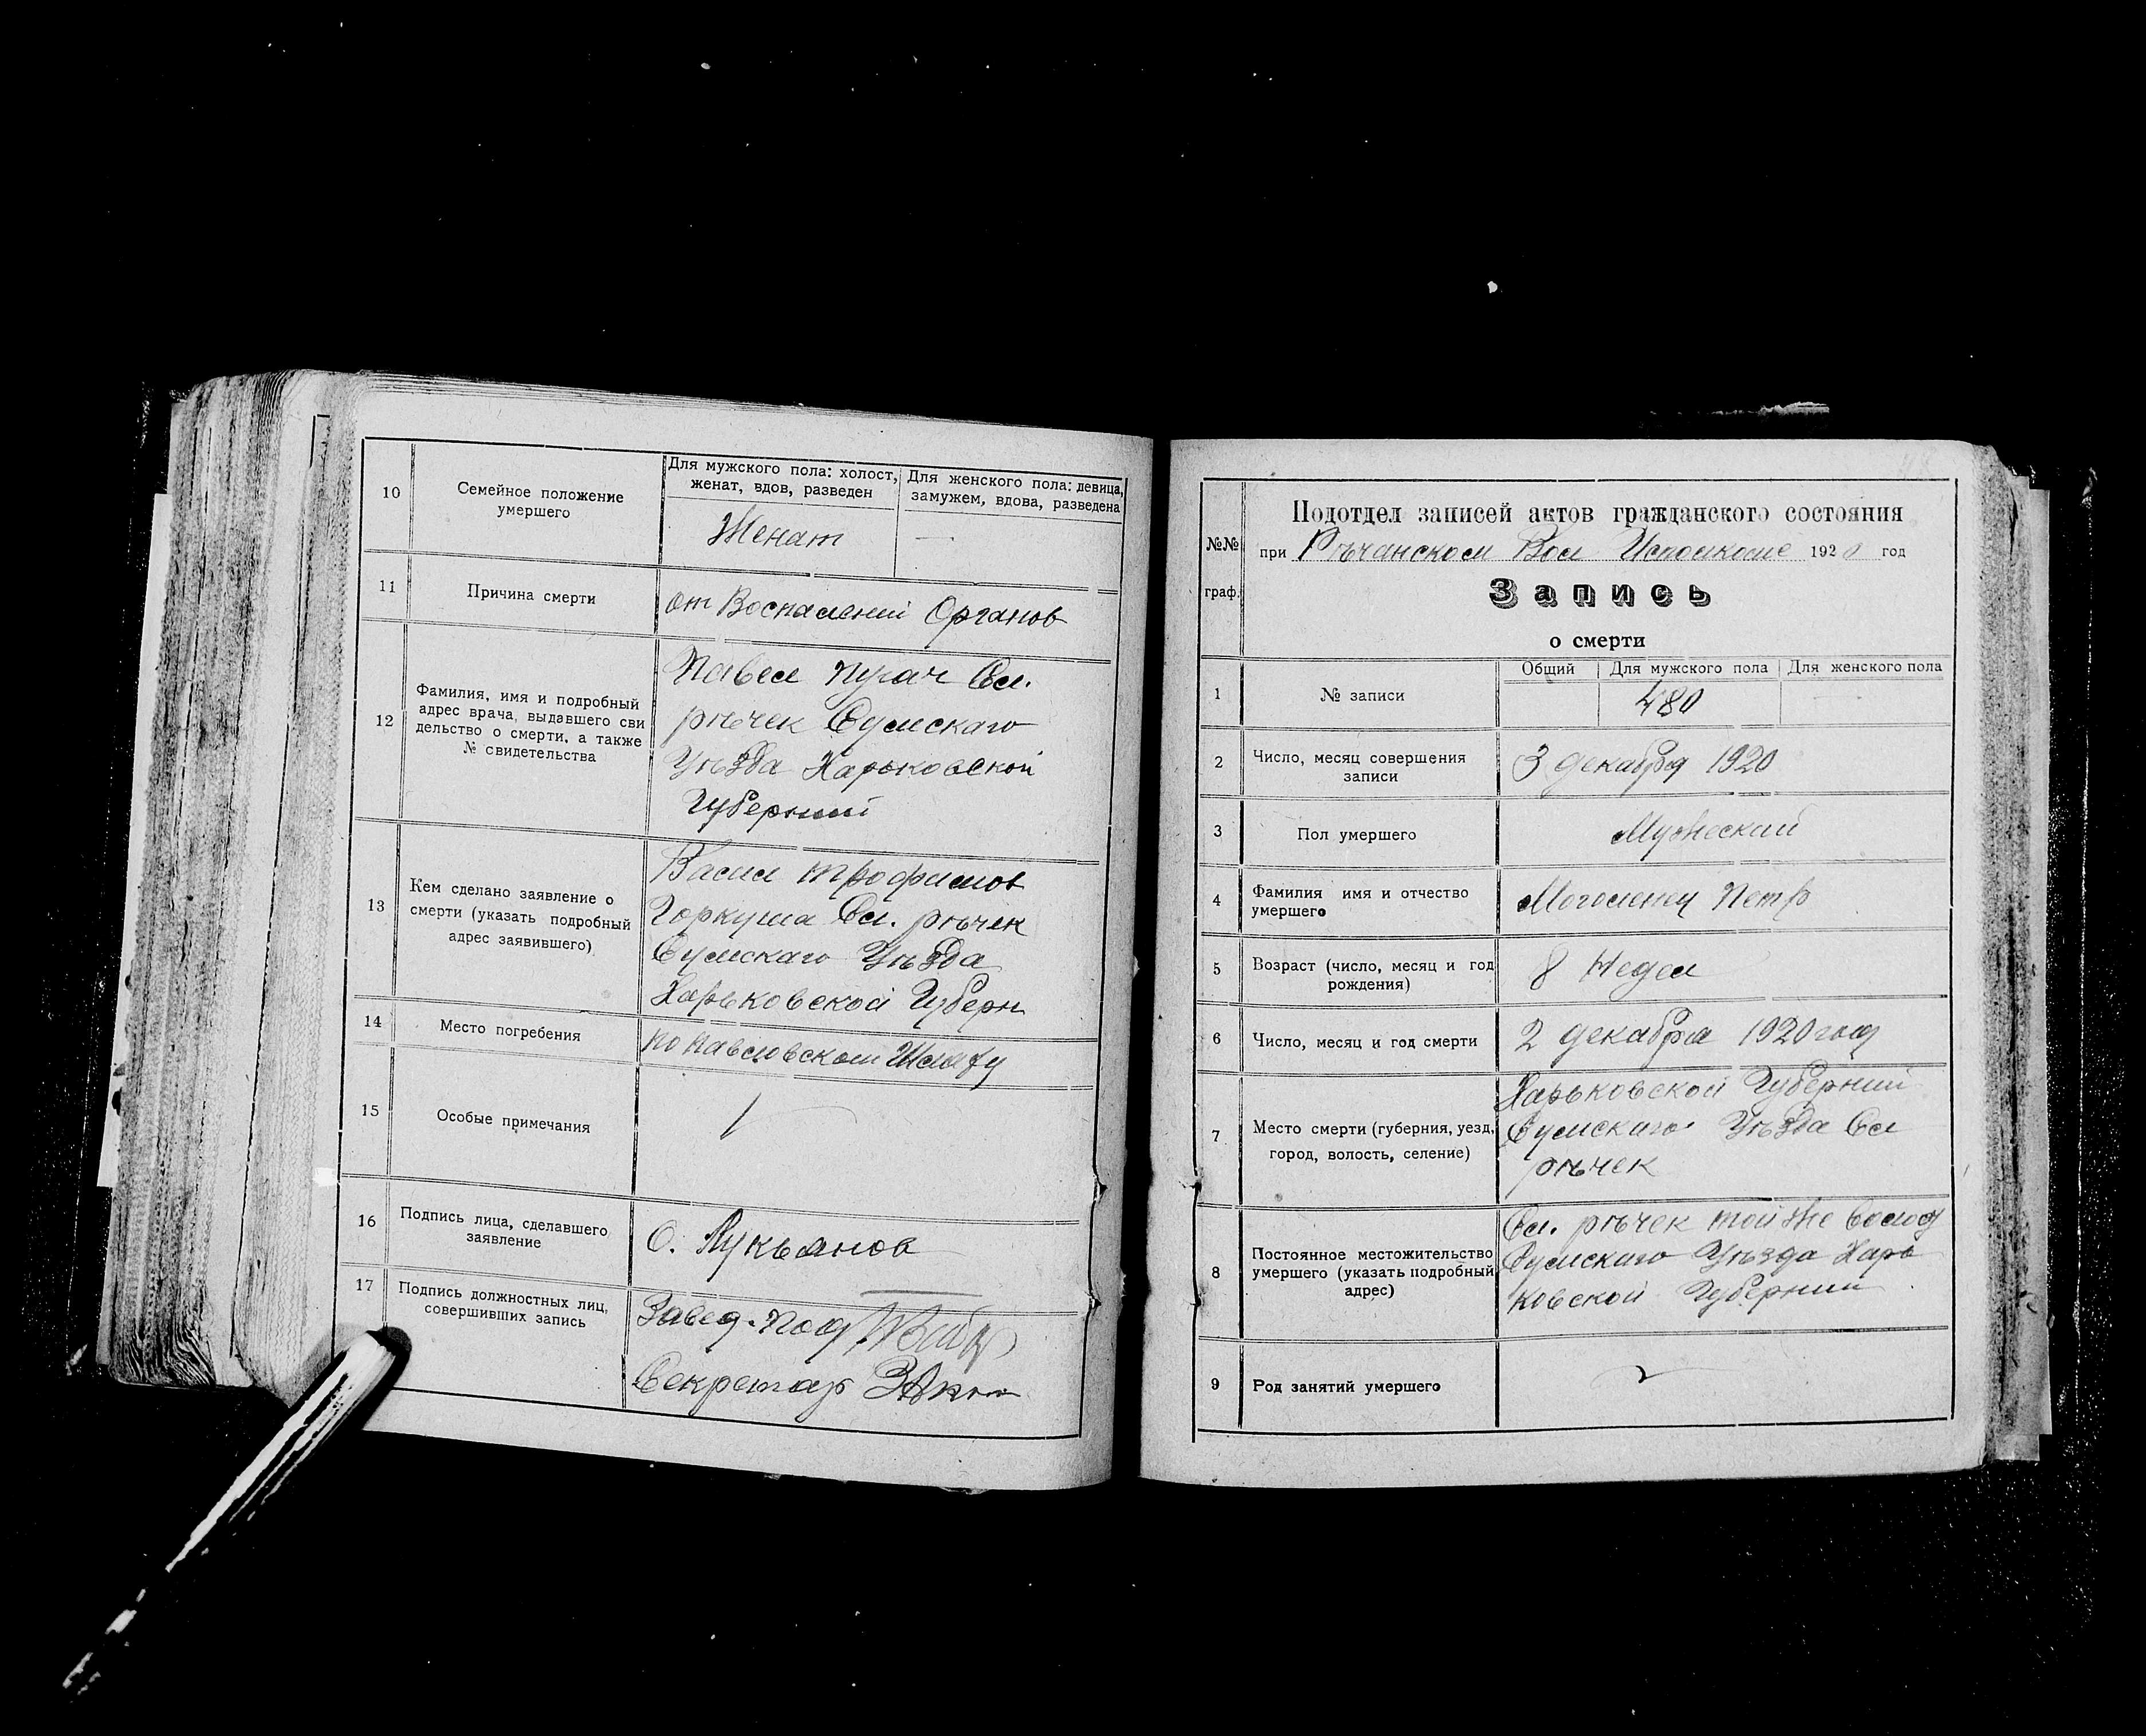 10
Семейное положение
умершего
Для мужского пола: холост,
женат, вдов, разведен
Для женского пола: девица,
замужем, вдова, разведена
Женат
—
11
Причина смерти
от Воспалений Органов
12
Фамилия, имя и подробный
адрес врача, выдавшего сви
дельство о смерти, а также
№ свидетельства
Павел Пугач Сл.
рѣчек Сумскаго
Уѣзда Харьковской
Губерний
13
Кем сделано заявление о
смерти (указать подробный
адрес заявившего)
Васил Трофимов
Горкуша Сл. рѣчек
Сумскаго Уѣзда
Харьковской Губерн
14
Место погребения
по павловском Шляху
15
Особые примечания
16
Подпись лица, сделавшего
заявление
О. Лукьянов
17
Подпись должностных лиц,
совершивших запись
Завед. Под
Секретарь
№№
граф.
Подотдел записей актов гражданского состояния
при Рѣчанском Вол Исполкоме 1920 год
Запись
о смерти
1
№ записи
Общий
Для мужского пола
Для женского пола
480
—
2
Число, месяц совершения
записи
3 декабря 1920
3
Пол умершего
Мужеский
4
Фамилия имя и отчество
умершего
Моголенец Петр
5
Возраст (число, месяц и год
рождения)
8 Недел
6
Число, месяц и год смерти
2 декабря 1920 год
7
Место смерти (губерния, уезд,
город, волость, селение)
Харьковской Губерний
Сумскаго Уѣзда Сл
рѣчек
8
Постоянное местожительство
умершего (указать подробный
адрес)
Сл. рѣчек той же волод
Сумскаго Уѣзда Харь
ковской Губернии
9
Род занятий умершего